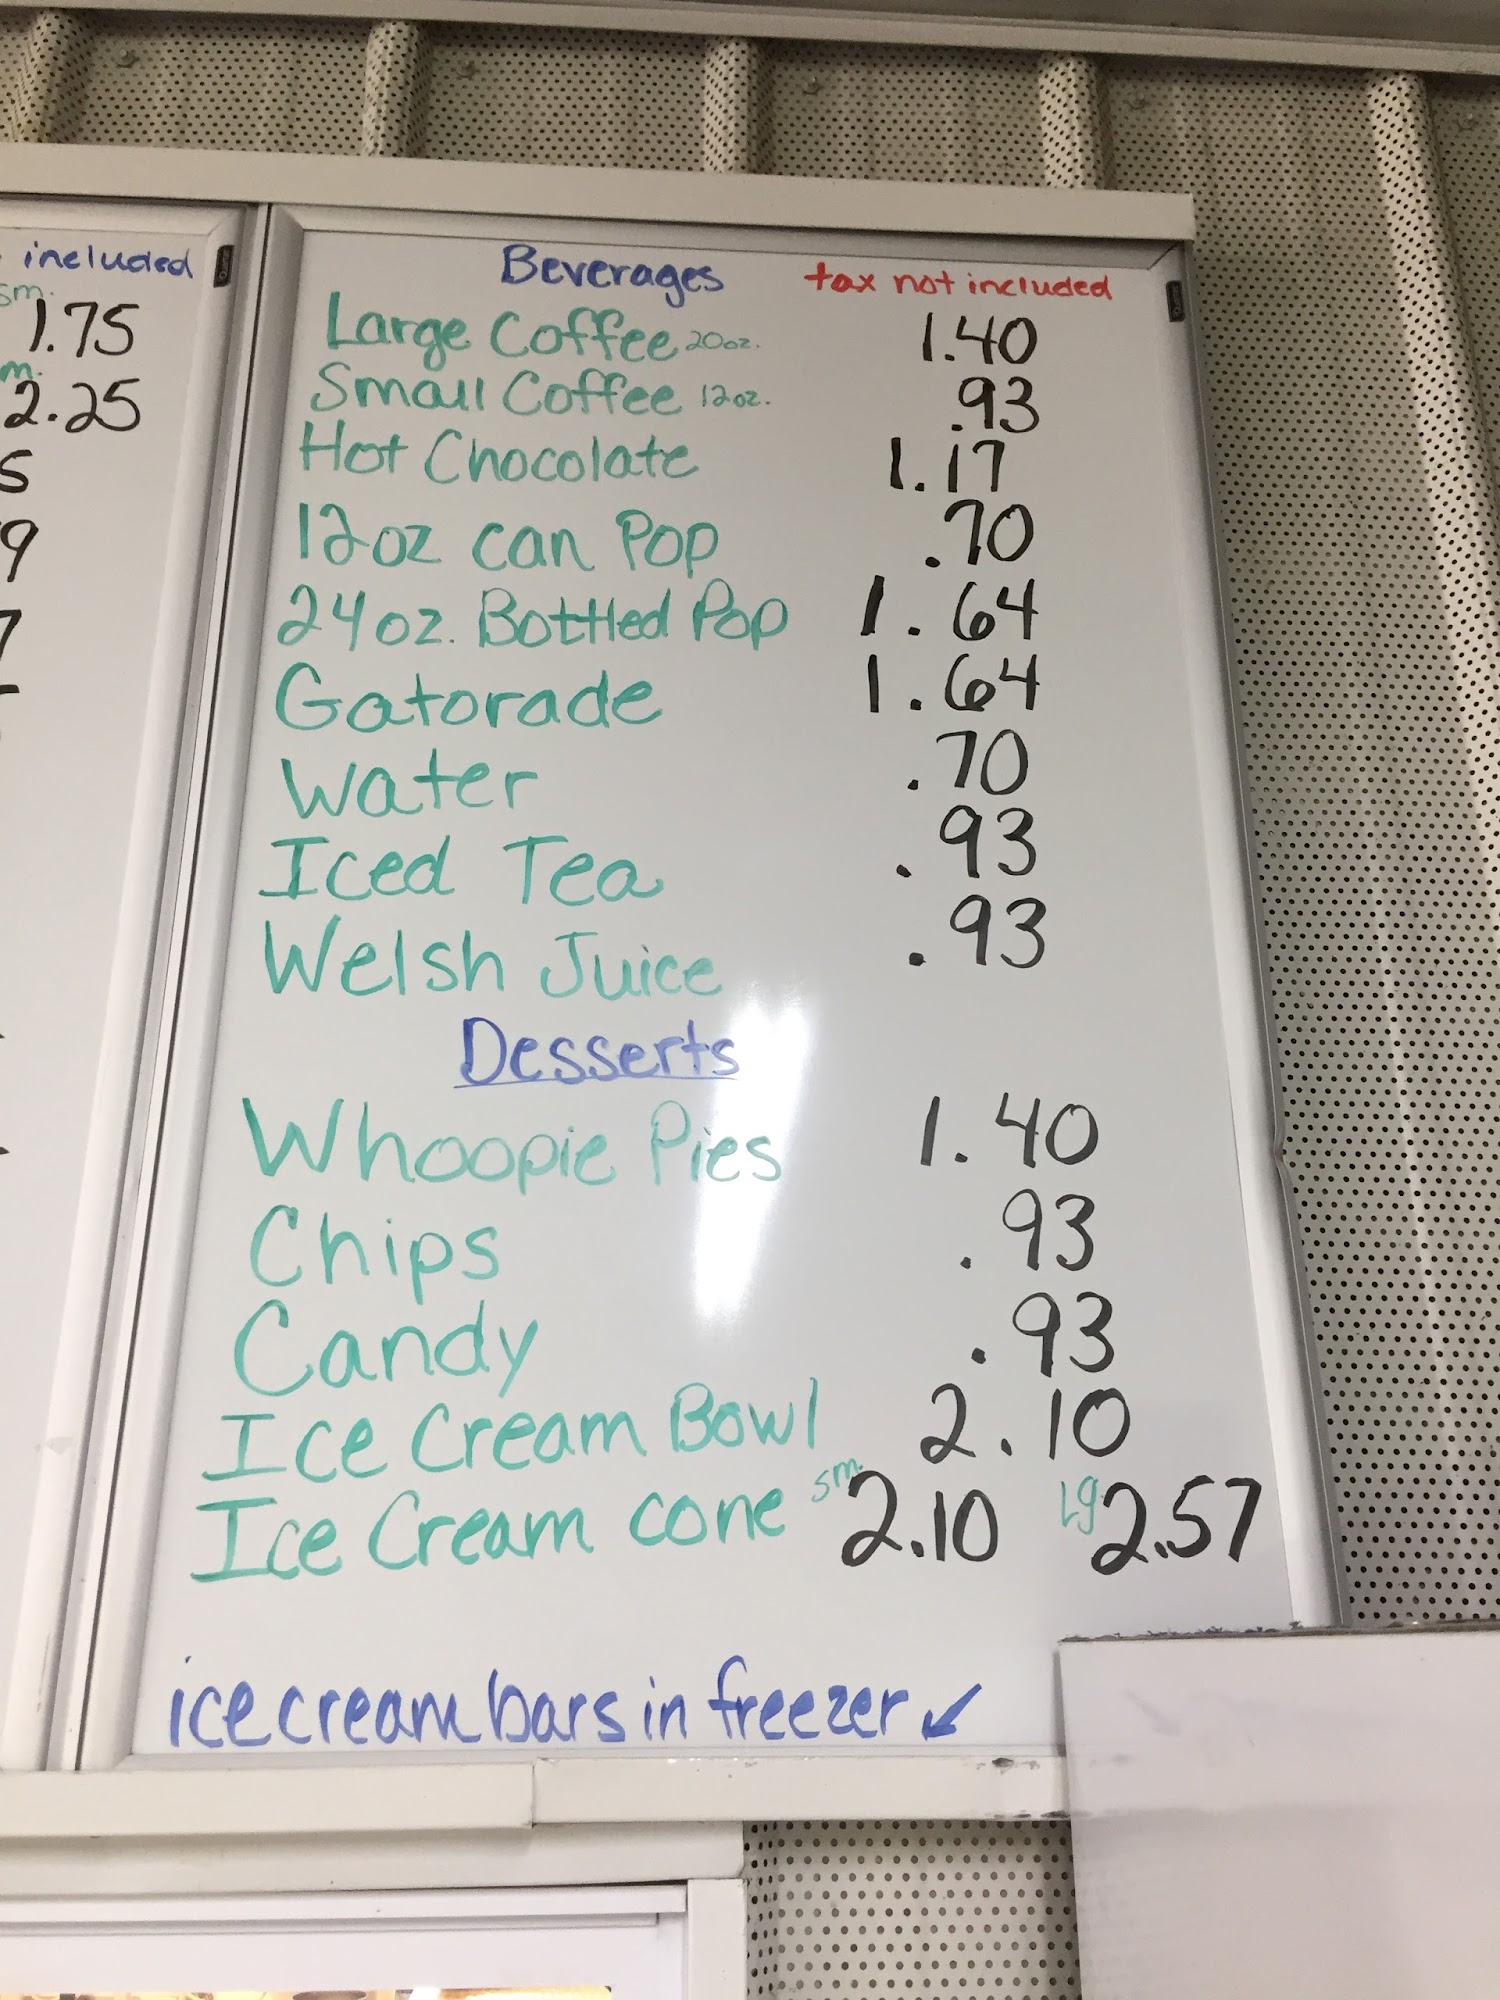 included
sm.
1.75
m.
2.25
5
9
7
Beverages tax not included
Large Coffee 20oz. 1.40
Small Coffee 12oz. .93
Hot Chocolate 1.17
12oz can Pop .70
24oz. Bottled Pop 1.64
Gatorade 1.64
Water .70
Iced Tea .93
Welsh Juice .93
Desserts
Whoopie Pies 1.40
Chips .93
Candy .93
Ice Cream Bowl 2.10
Ice Cream cone sm. 2.10 Lg 2.57
ice cream bars in freezer ↙